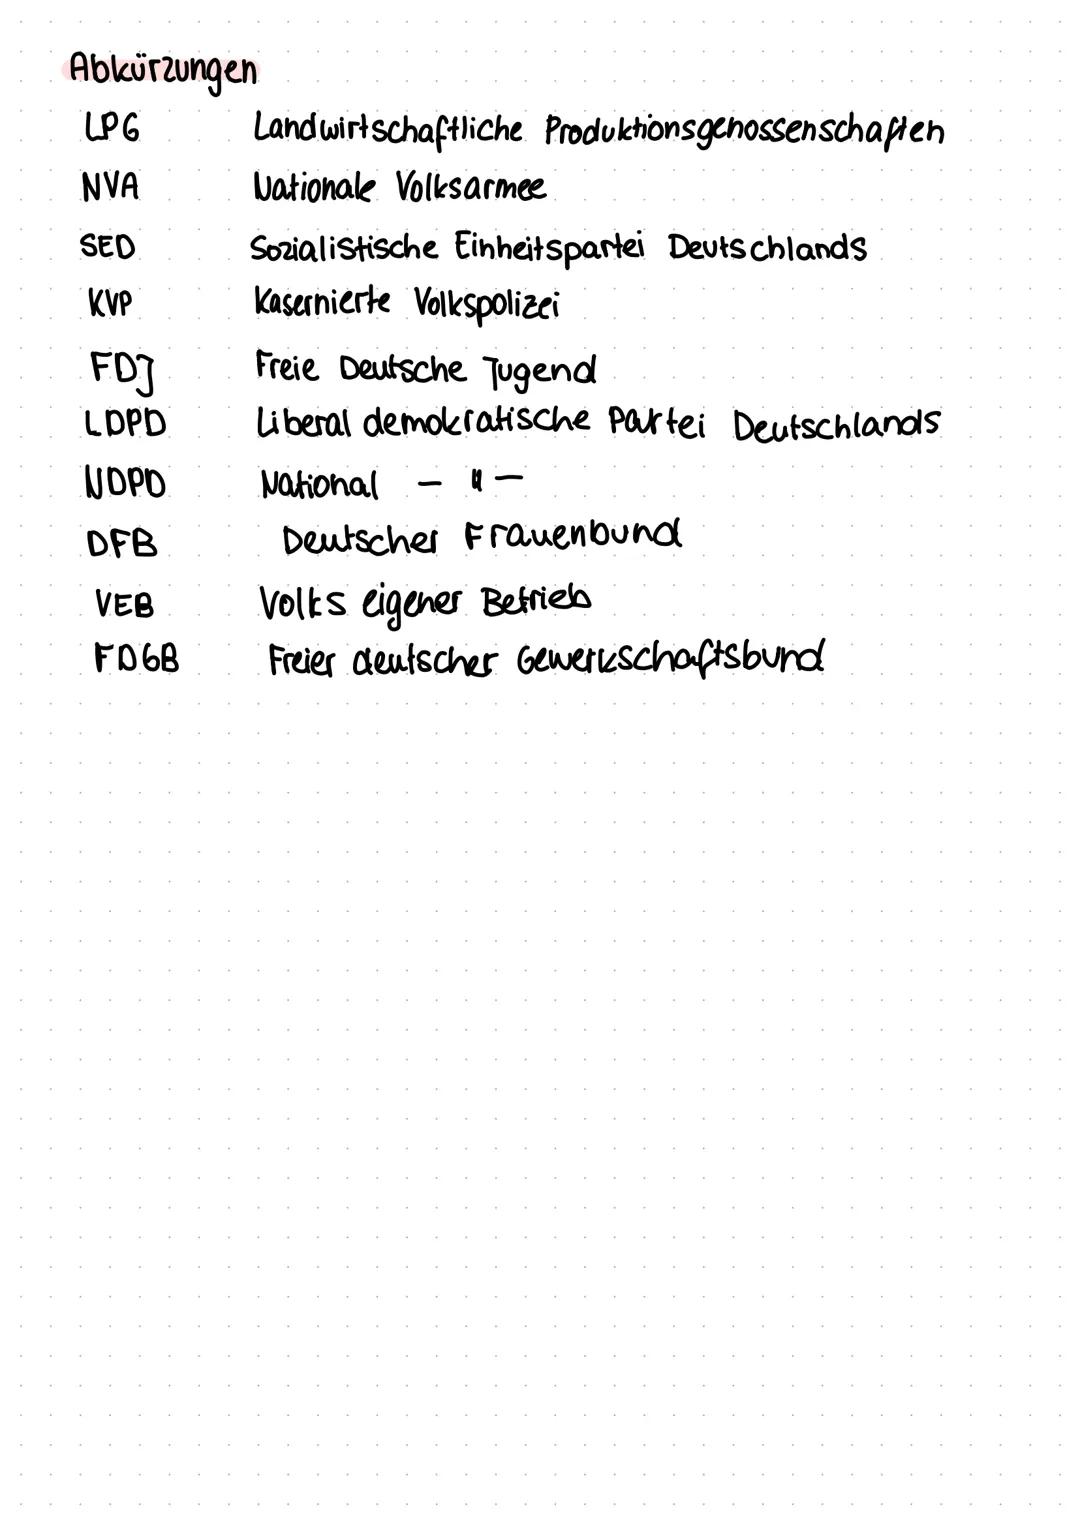 Abkürzungen
LPG Landwirtschaftliche Produktionsgenossenschaften
NVA Nationale Volksarmee
SED Sozialistische Einheitspartei Deutschlands
KVP Kasernierte Volkspolizei
FDJ Freie Deutsche Jugend
LDPD Liberal demokratische Partei Deutschlands
NDPD National - " -
DFB Deutscher Frauenbund
VEB Volks eigener Betrieb
FDGB Freier deutscher Gewerkschaftsbund